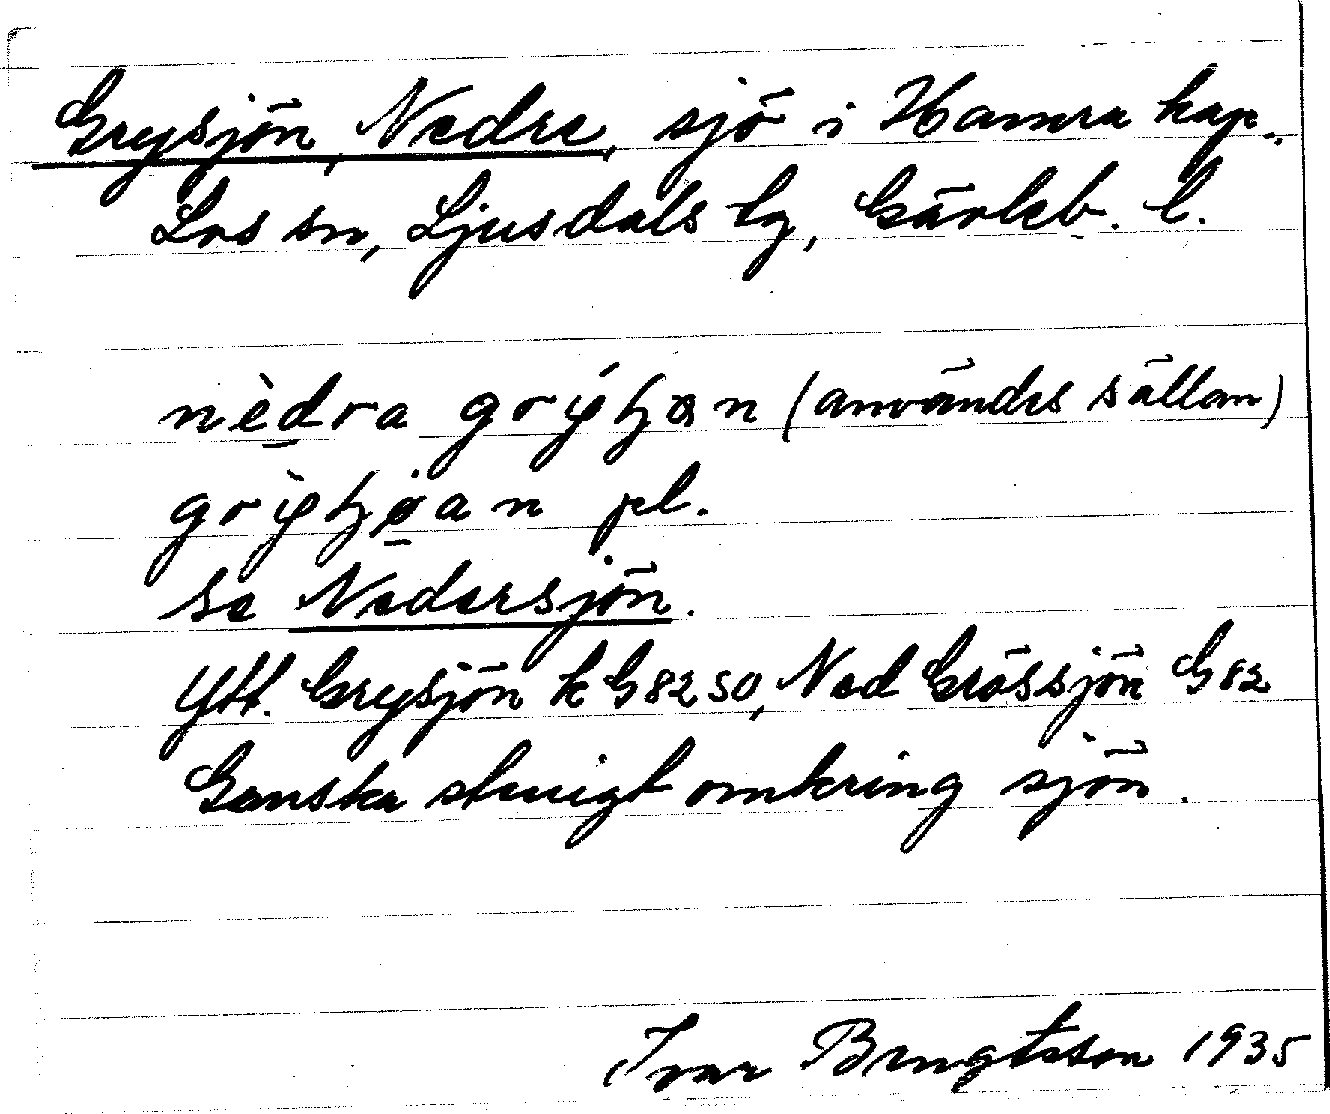 Grysjön, Nedre, sjö i Hamra kap.
Los sn, Ljusdals tg, Gävleb. l.
nèdra grýʃʒan (användes sällan)
grỳʃʒøan pl.
Se Nedersjön.
Ytt. Grysjön k G82 SO, Ned Grössjön G82
Ganska stenigt omkring sjön.
Ivar Bengtsson 1935